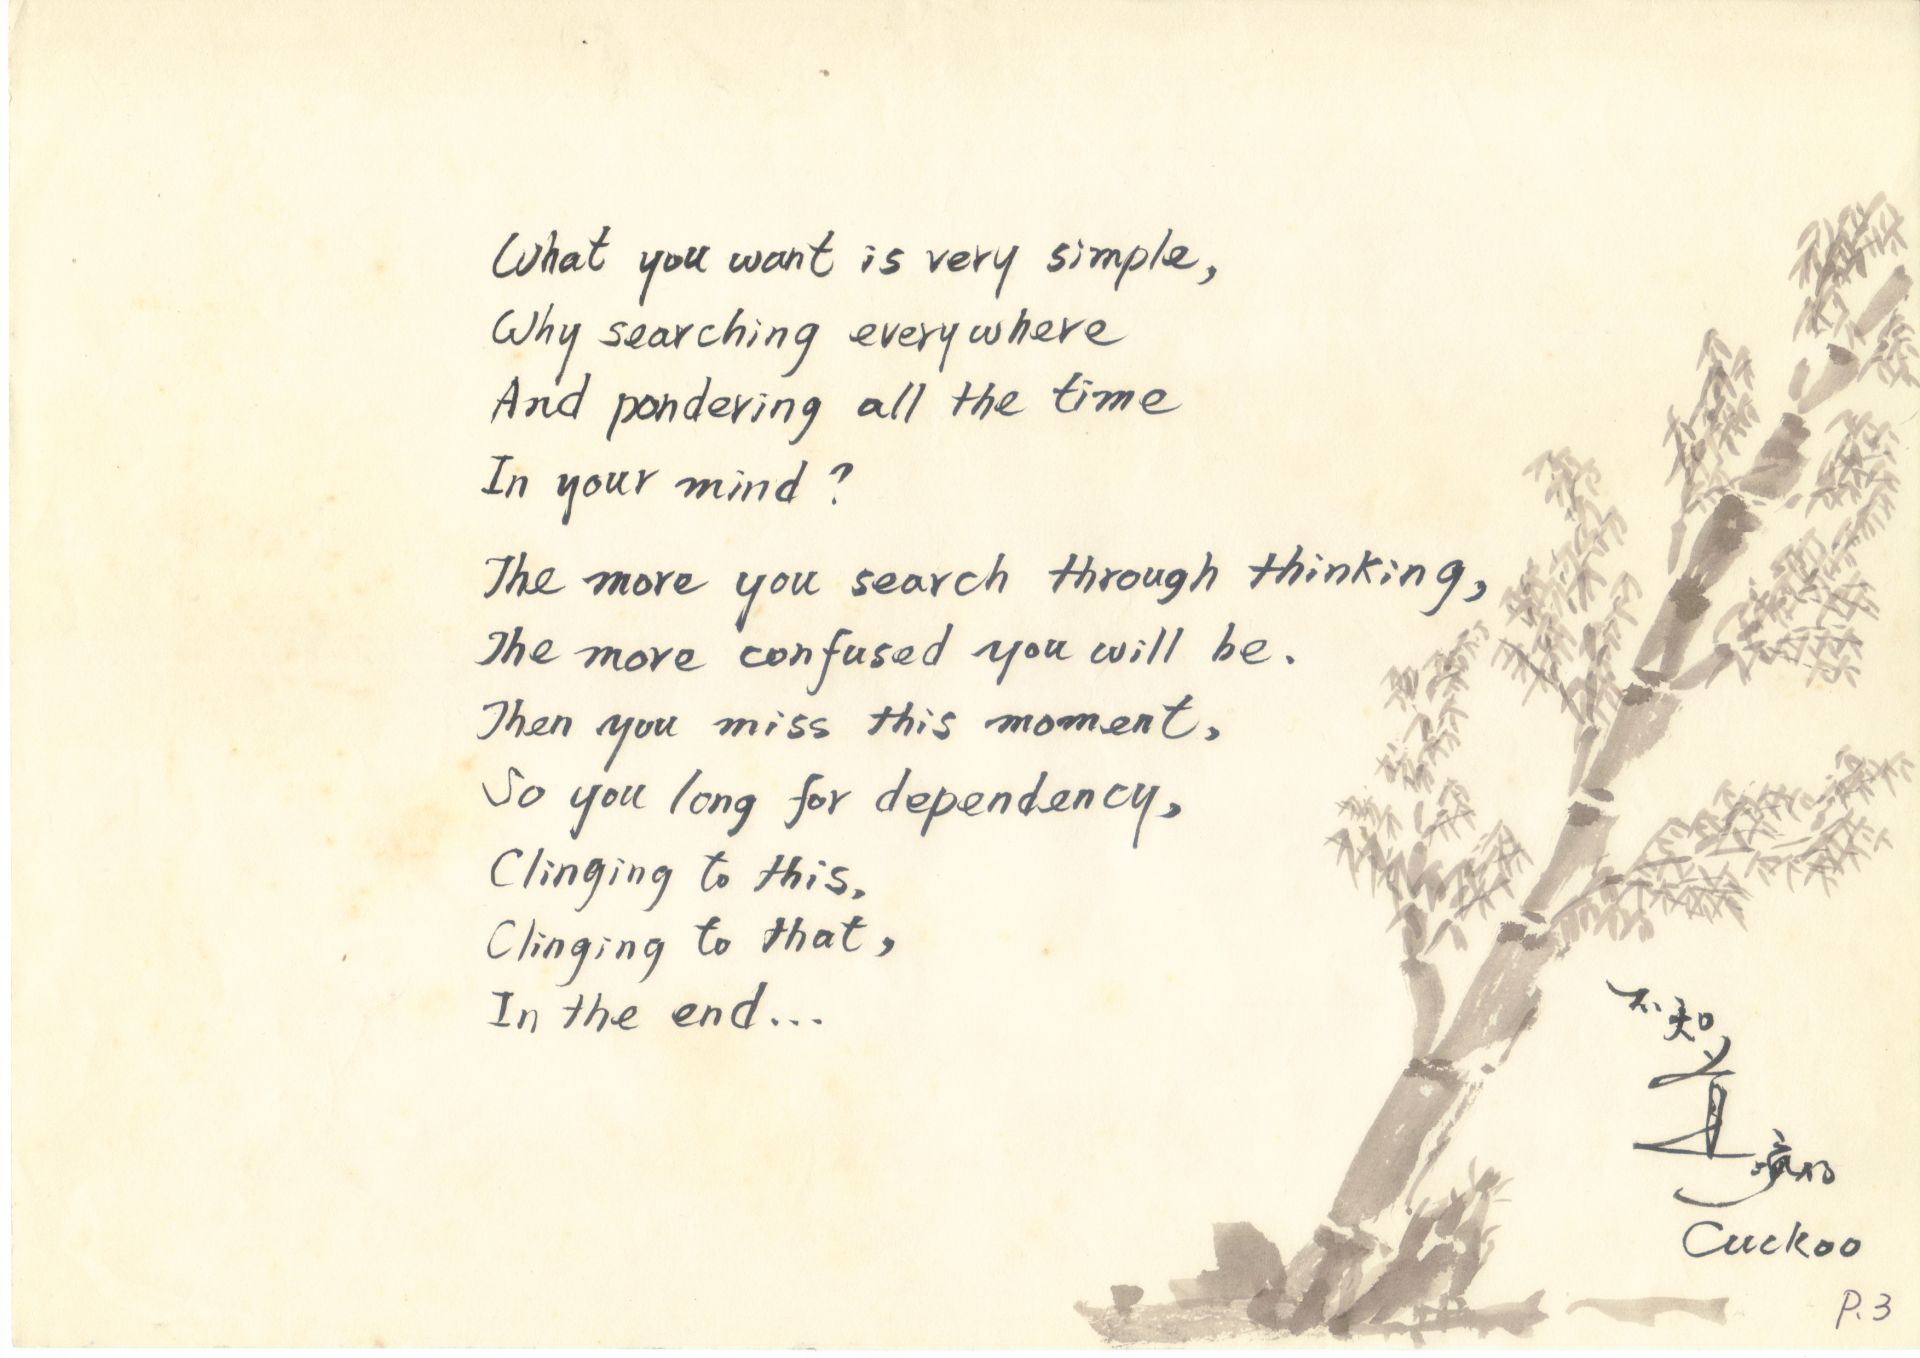 What you want is very simple,
Why searching everywhere
And pondering all the time
In your mind?
The more you search through thinking,
The more confused you will be.
Then you miss this moment,
So you long for dependency,
Clinging to this,
Clinging to that,
In the end...
不知
道
Cuckoo
P.3